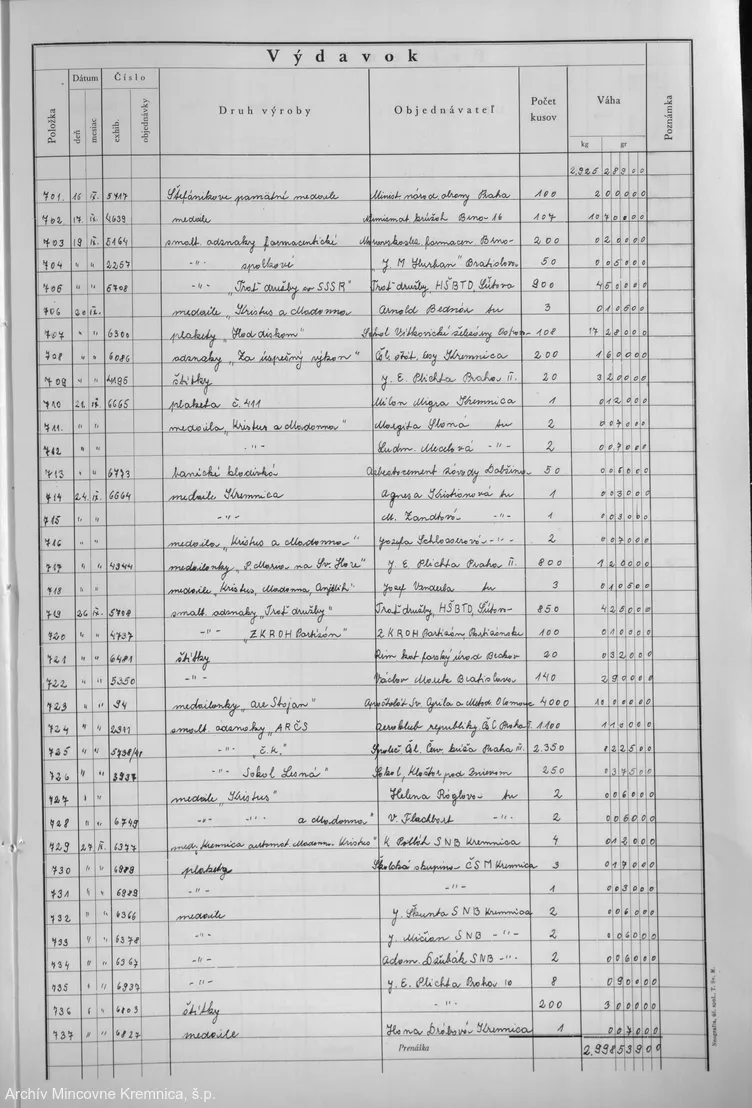 Výdavok
Položka Dátum deň mesiac Číslo exhib. objednávky Druh výroby Objednávateľ Počet kusov Váha kg gr Poznámka
2.925 289 00
701. 16 IX. 5717 Štefánikove pamätné medaile Minist národ. obrany Praha 100 200000
702. 17 IX. 4639 medaile Numismat. krúžok Brno 16 107 1070000
703 19 IX. 5164 smalt. odznaky farmaceutické farmaceu Brno 200 020000
704 " " 2257 -"- spolkové "J. M Hurban" Bratislava 50 005000
705 " " 5708 -"- "Trať družby SSSR" Trať družby, HŠBTD, Sútovo 900 450000
706 20 IX. medaile "Kristus a Madonna Arnold Bednár tu 3 010500
707 " " 6300 plakety "Hod diskom" Sokol Vítkovické železárny Ostrava 108 1728000
708 " " 6086 odznaky "Za úspečný výkon" Čsl. štát. lesy Kremnica 200 160000
709 " " 4195 štítky J. E. Plichta Praha II. 20 320000
710 21 IX. 6665 plaketa č. 411 Milan Migra Kremnica 1 012000
711. " " medaila "Kristus a Madonna" Margita Slomá tu 2 007000
712 " " -"- Ludm. -"- 2 007000
713 " " 6773 banícké kladivká Azbestocement závody Dobšina 50 005000
714 24. IX. 6664 medaile Kremnica Agnesa Kristianová tu 1 003000
715 " " -"- M. Zandtová -"- 1 003000
716 " " medaila "Kristus a Madonna" Jozefa Schlosserová -"- 2 007000
717 " " 4944 medailonky "P. Maria na Sv. Hore" J. E. Plichta Praha II. 800 120000
718 medaile "Kristus, Madonna, Jozef tu 3 010500
719 26 IX. 5708 smalt. odznaky "Trať družby" Trať družby, HŠBTD, Sútovo 850 425000
720 " " 4737 -"- "ZKROH Partizán" ZKROH Partizán Partizánske 100 010000
721 " " 6481 štítky Rím kat farský úrad Beckov 20 032000
722 " " 5350 -"- Václav Bratislava 140 290000
723 " " 94 medailonky "Arc Stojan" Apoštolát Sv. Cyrila a Metod Olomouc 4000 10 00000
724 " " smalt. odznaky "ARČS Aeroklub republiky Čsl. Praha 1.100 110000
725 " " 5738/48 -"- "č.k." Společ. Čsl. Červ. kríža Praha III. 2.350 822500
726 " " 3937 -"- Sokol Lesná" Sokol, Kláštor pod Znievom 250 037500
727 " " medaile "Kristus" Helena Róglová tu 2 006000
728 " " 6749 -"- -"- a Madonna" V. Fladbart -"- 2 006000
729 27 IX. 6377 med. "Kremnica automat. Madonna. Kristus" K SNB Kremnica 4 012000
730 " " 6989 plakety Školská skupina ČSM Kremnica 3 017000
731 " " 6989 -"- -"- 1 003000
732 " " 6366 medaile J. Škunta SNB Kremnica 2 006000
733 " " 6378 -"- J. Mičian SNB -"- 2 006000
734 " " 6367 -"- Adam. Dzubák SNB -"- 2 006000
735 " " 6937 -"- J. E. Plichta Praha 10 8 090000
736 " " 6803 štítky -"- 200 300000
737 " " 6827 medaile Ilona Drábová Kremnica 1 007000
Prenáška 2.99853900
Archív Mincovne Kremnica, š.p.